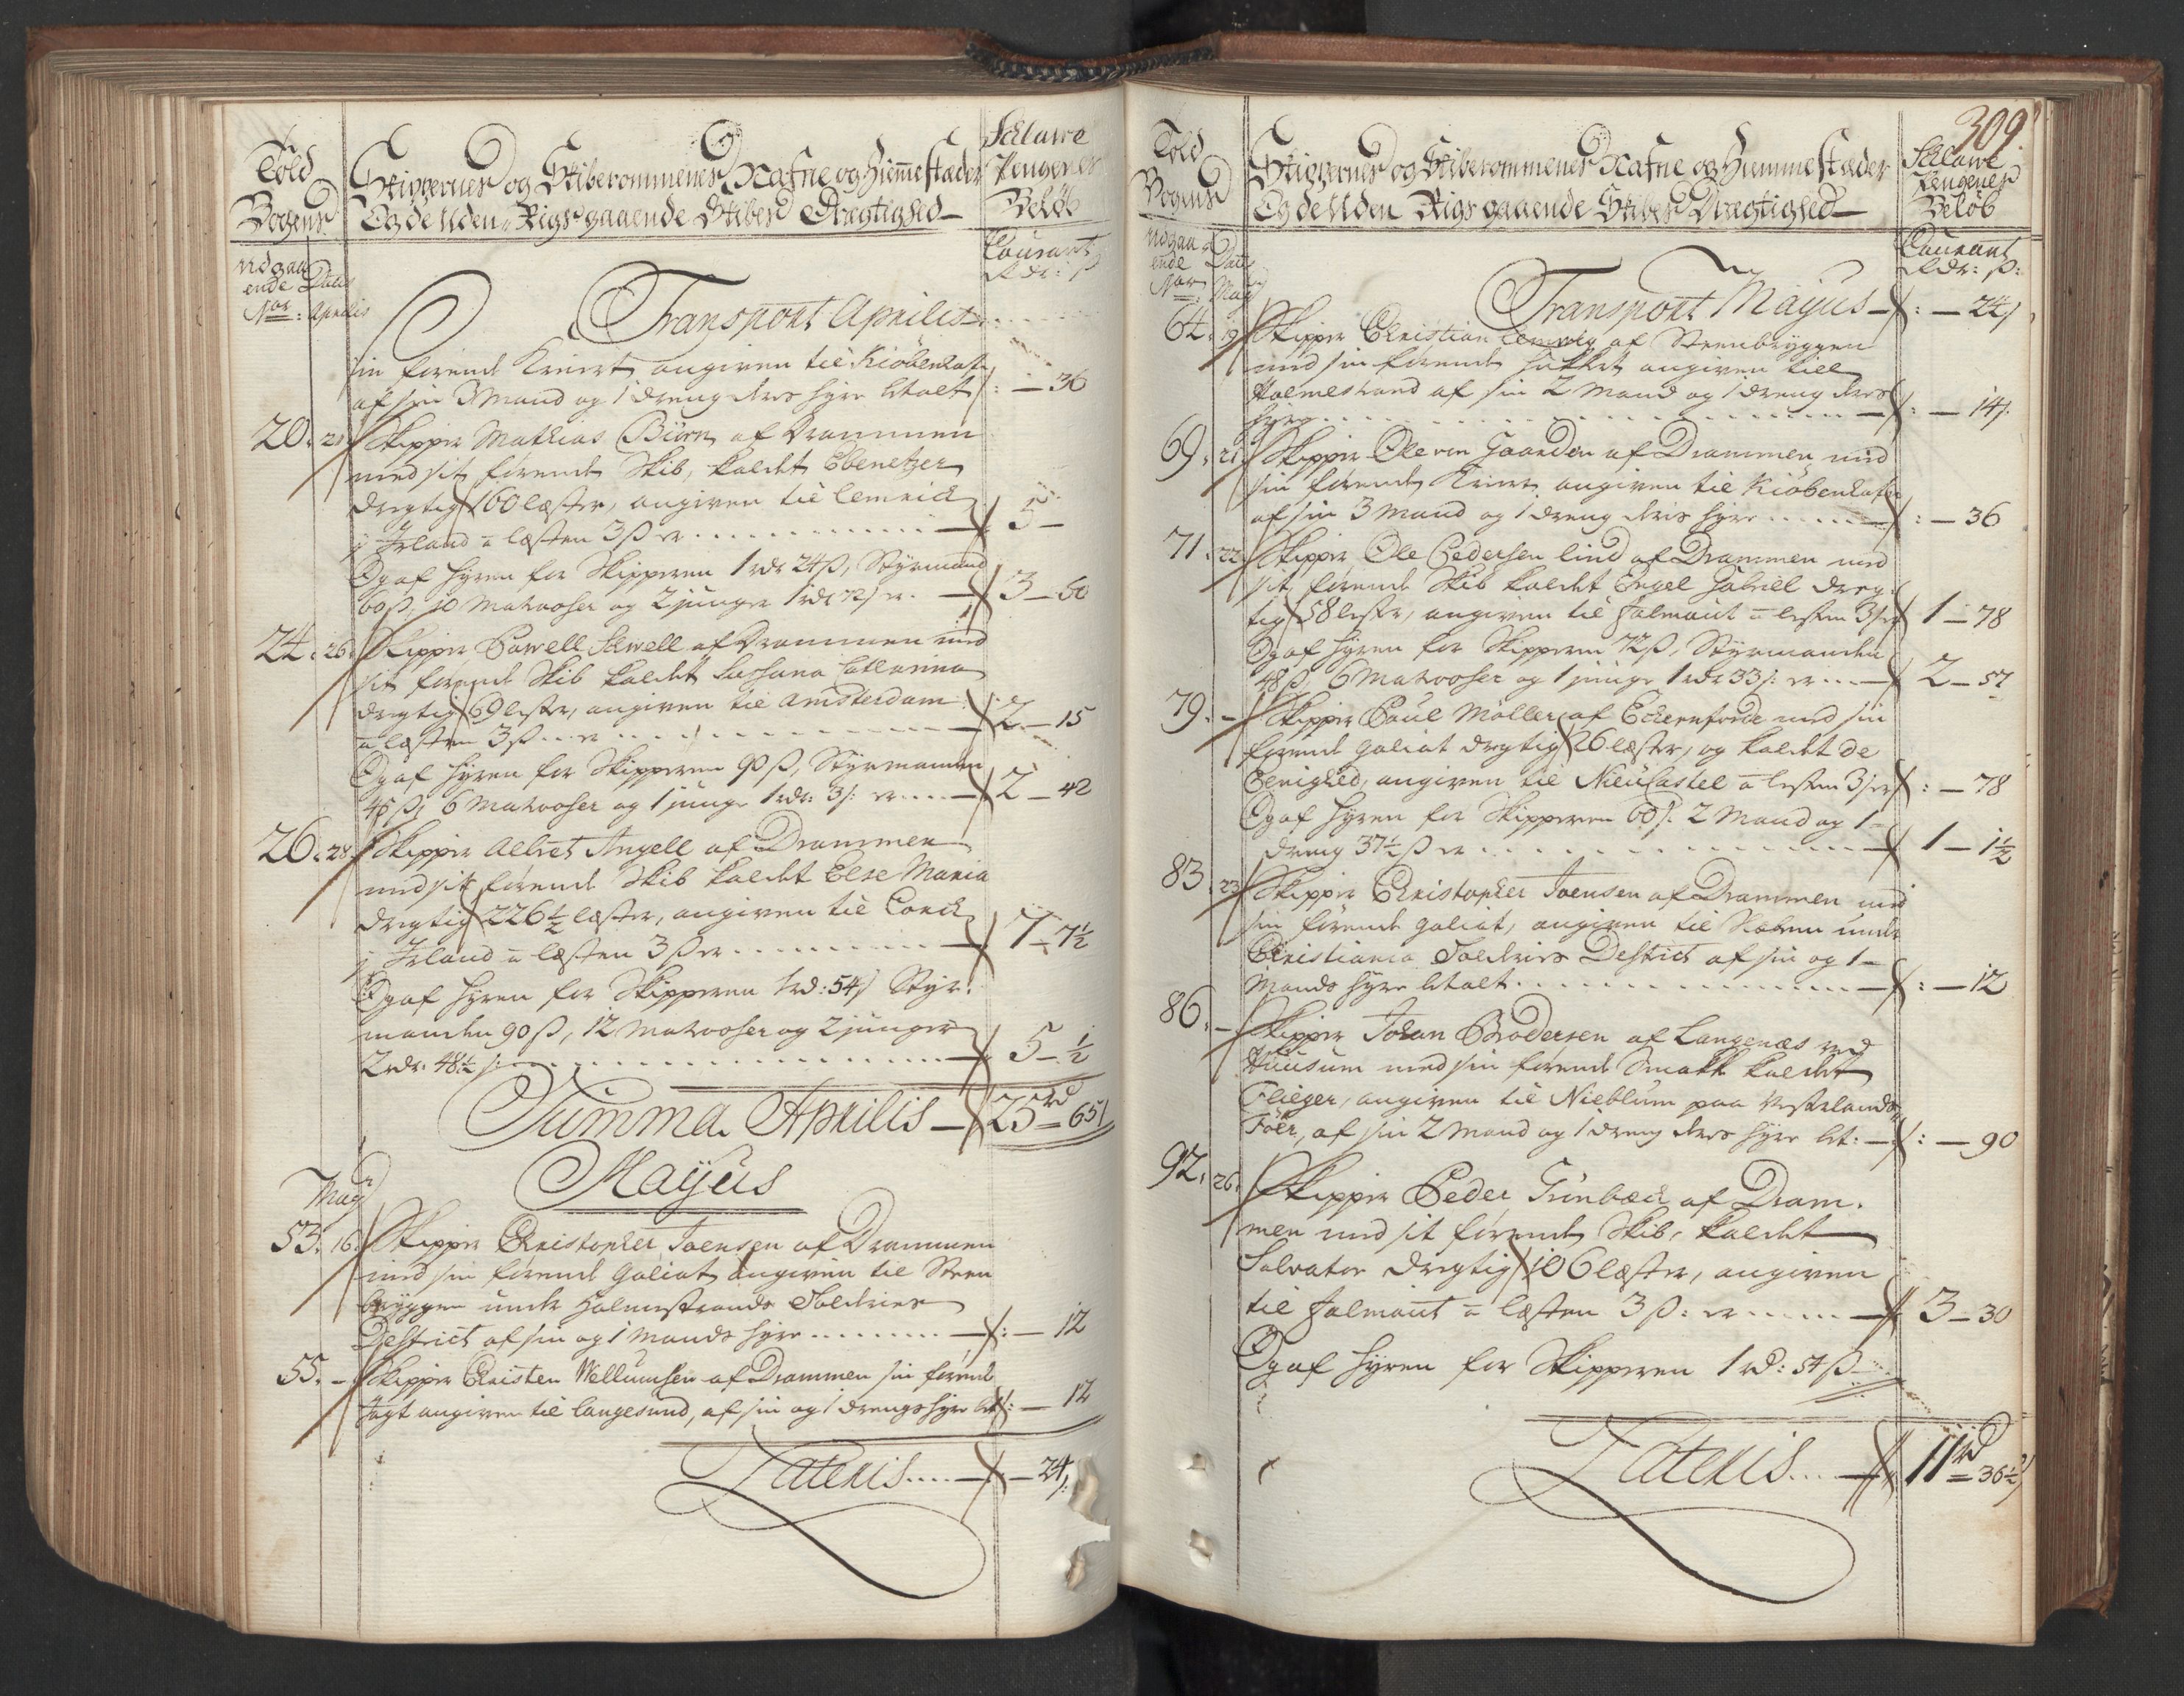 Told
Bogens
Skippernes og Skiberommenes Nafne og Hiemmestæder
Og de Uden-Rigs gaaende Skibes Drægtighed
Sclawe
Pengenes
Beløb
Udgaa
ende Datis
Nor: Aprilis
Courant
Rdr: ß
Transport Aprilis
sin førende Kreiert angiven til Kiøbenhafn
af sin 3 Mand og 1 dreng deres hyre betalt : — 36
20. 21 Skipper Mathias Biørn af Drammen
med sit førende Skib, kaldet Ebenetzer
dregtig 160 læster, angiven til Lemrick
i Irland a læsten 3 ß er 5 —
Og af hyren for Skipperen 1 rdr 24 ß, Styrmand
60 ß, 10 Matrooser og 2 junger 1 rdr 72 ß er 3 — 60
24. 26. Skipper Powell Schwell af Drammen med
sit førende Skib kaldet Sussana Catharina
dregtig 69 lester, angiven til Amsterdam
a læsten 3 ß er 2 — 15
Og af hyren for Skipperen 90 ß, Styrmanden
48 ß, 6 Matrooser og 1 junge 1 rdr: 3 ß: er 2 — 42
26. 28. Skipper Albret Angell af Drammen
med sit førende Skib kaldet Else Maria
dregtig 226½ læster, angiven til Corck
i Irland a læsten 3 ß er 7 — 7½
Og af hyren for Skipperen 1 rd: 54 ß Styr-
manden 90 ß, 12 Matrooser og 2 junger
2 rdr. 48½ ß: 5 — ½
Summa Aprilis — 25 rd — 65 ß
Mayus
May
53. 16. Skipper Christopher Joensen af Drammen
med sin førende Galiot angiven til Steen
bryggen under Holmestrands Tolderies
Destrict af sin og 1 Mands hyre : — 12
55. — Skipper Christen Wellumsen af Drammen sin førende
Jagt angiven til Langesund, af sin og 1 drengs hyre bet : — 12
Lateris — 24 ß
309.
Told
Bogens
Skippernes og Skiberommenes Nafne og Hiemmestæder
Og de Uden Rigs gaaende Skibes Drægtighed
Sclawe
Pengenes
Beløb
Udgaa
ende Datis
Nor May
Courant
Rdr: ß:
Transport Mayus : — 24 ß
64. 19 Skipper Christian Lemvig af Steenbryggen
med sin førende Hukkert angiven till
Holmestrand af sin 2 Mand og 1 dreng deres
hyre : — 14 ß.
69. 21 Skipper Ole von Gaarden af Drammen med
sin førende Kreiert angiven til Kiøbenhafn
af sin 3 Mand og 1 dreng deris hyre : — 36
71. 22 Skipper Ole Pedersen Lind af Drammen med
sit førende Skib kaldet Engel Gabriel dreg-
tig 58 lester, angiven til Falmout a lesten 3 ß er 1 — 78
Og af hyren for Skipperen 72 ß, Styrmanden
48 ß, 6 Matrooser og 1 junge 1 rdr 33 ß: er 2 — 57
79. — Skipper Poul Møller af Eckernførde med sin
førende Galiot dregtig 26 læster, og kaldet de
Eenighed, angiven til NieuCastel a lesten 3 ß er : — 78
Og af hyren for Skipperen 60 ß. 2 Mand og 1
dreng 37½ ß er 1 — 1½
83. 23 Skipper Christopher Joensen af Drammen med
sin førende Galiot, angiven til Næsen under
Christiania Tolderies Destrict af sin og 1
Mands hyre betalt : — 12
86. — Skipper Johan Brodersen af Langenæs ved
Huusum med sin førende Smakk kaldet
Flieger, angiven til Nieblum paa Vesterlands
Föer, af sin 2 Mand og 1 dreng deres hyre bet: : — 90
92. 26. Skipper Peder Tinbæck af Dram-
men med sit førende Skib, kaldet
Salvator dregtig 106 læster, angiven
til Falmout a læsten 3 ß: er 3 — 30
Og af hyren for Skipperen 1 rd: 54 ß
Lateris 11 rd — 36½ ß